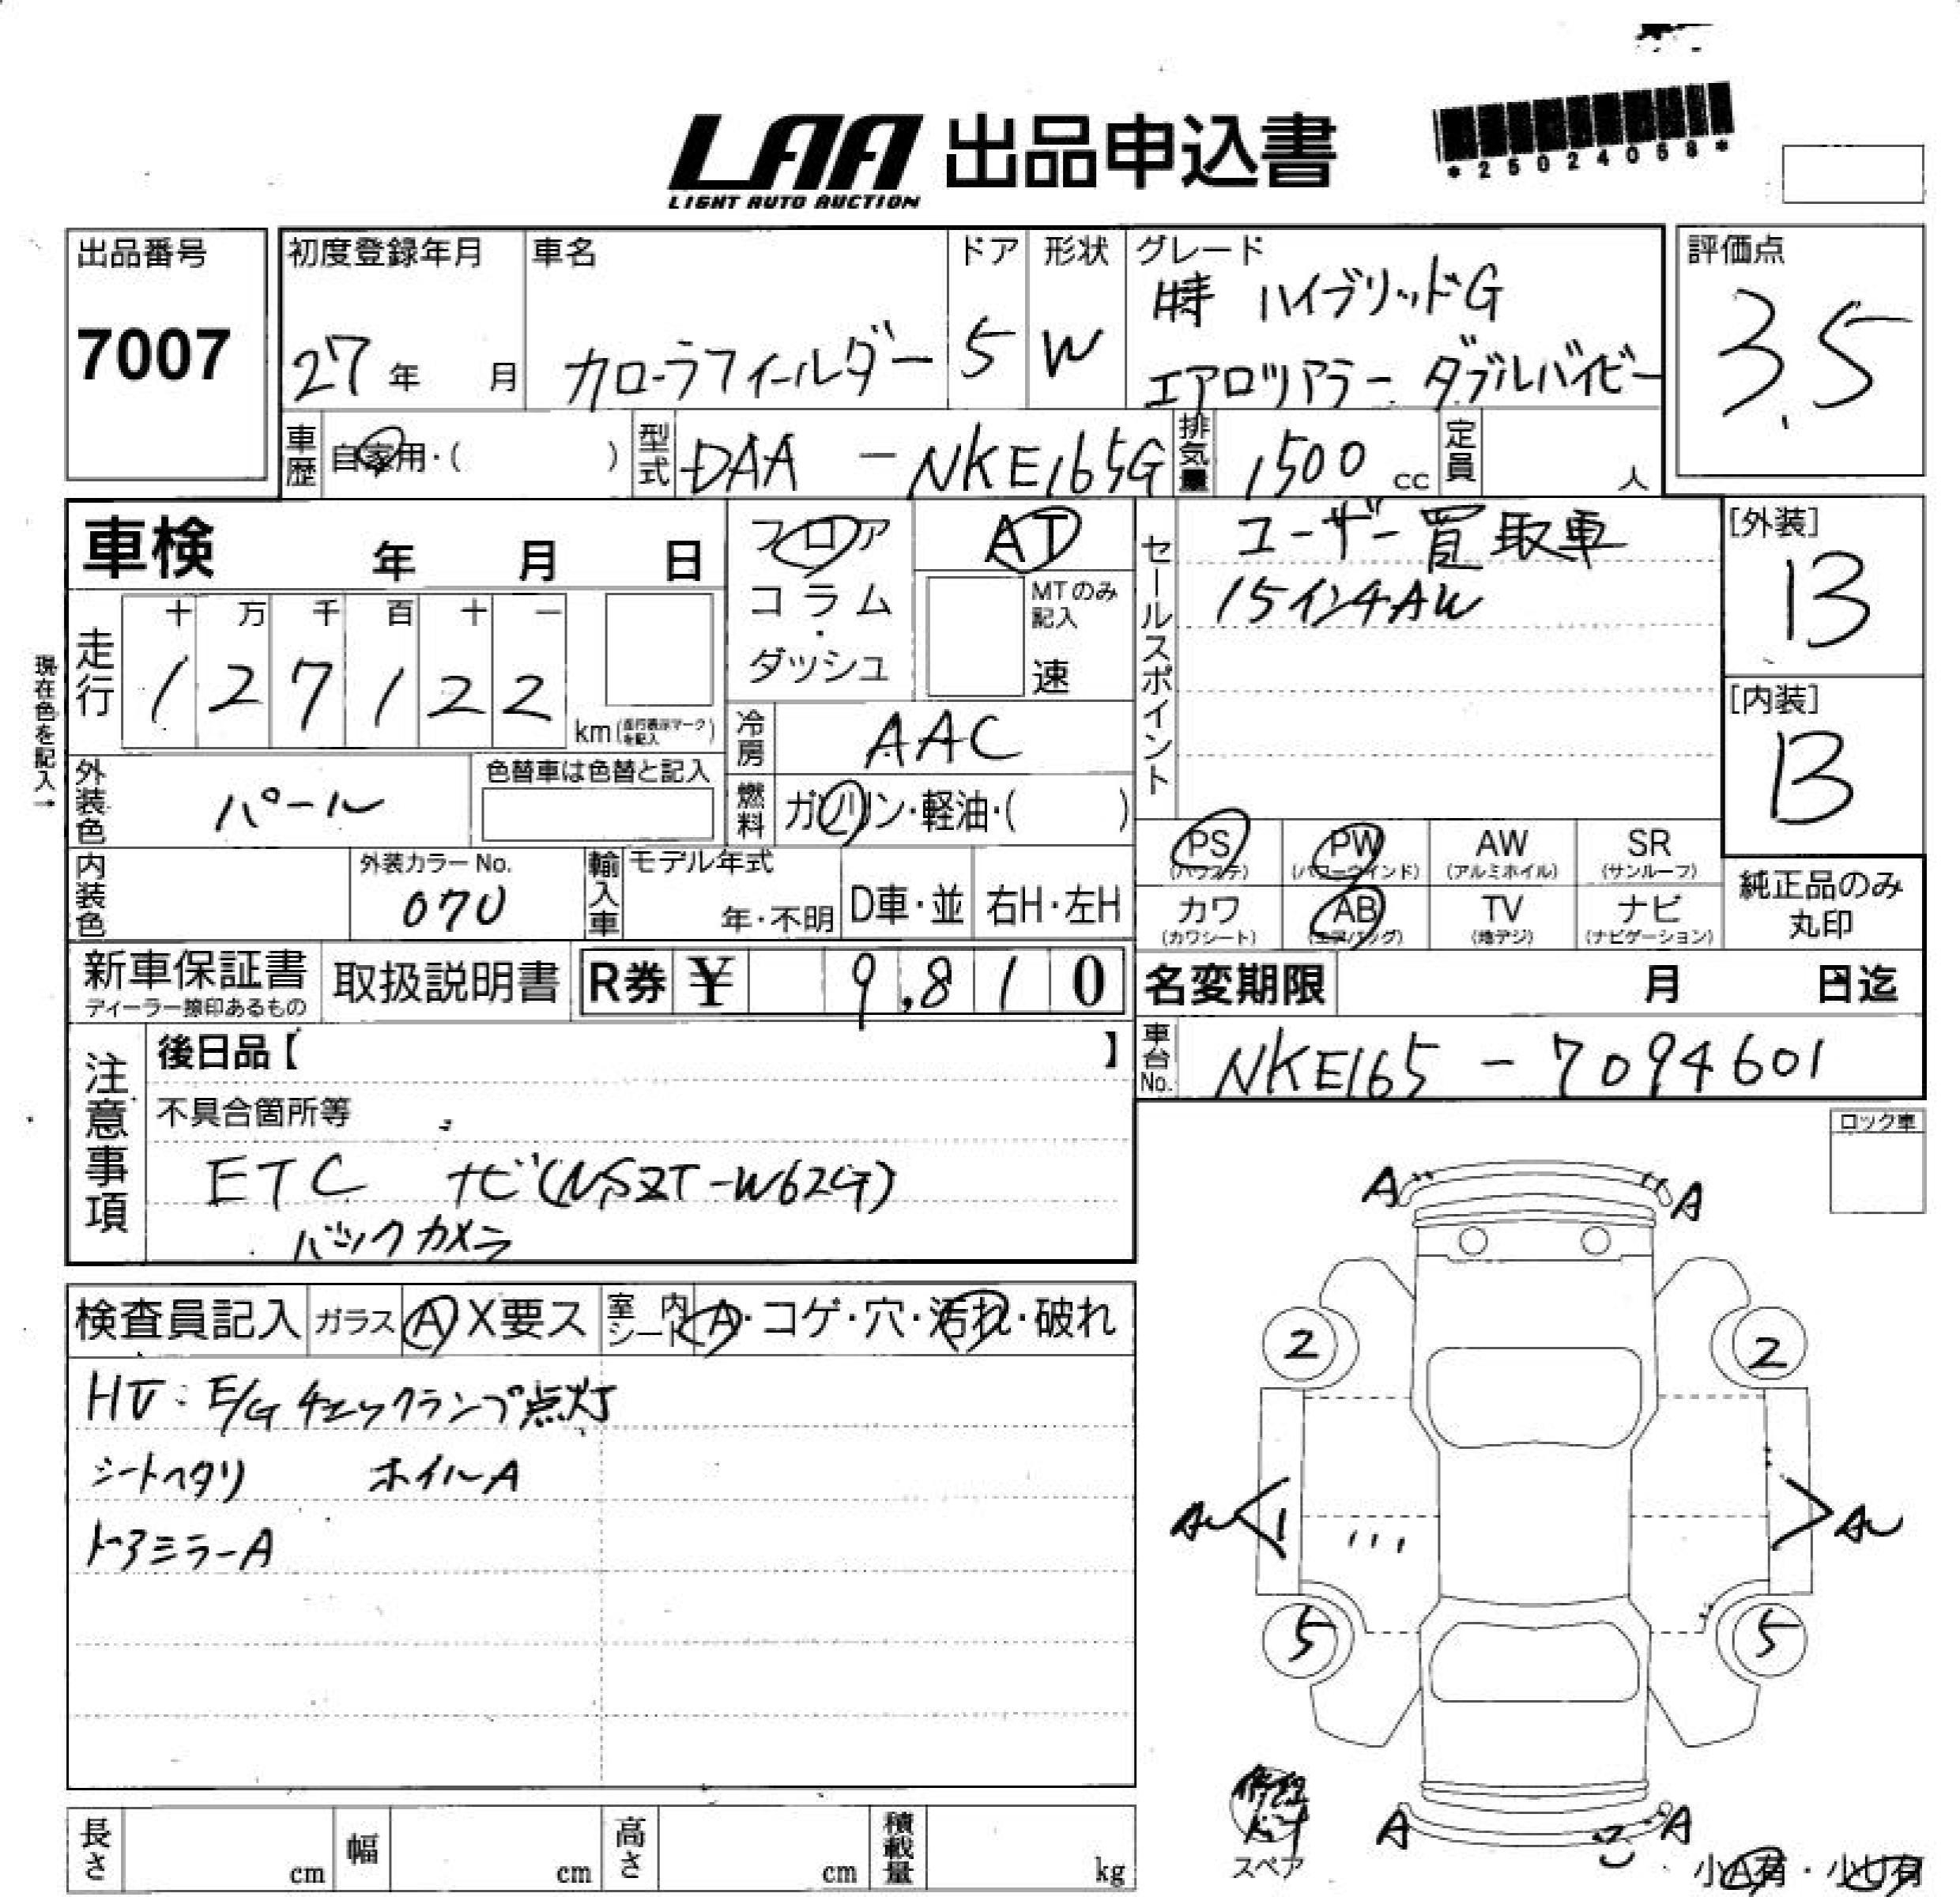 LAA 出品申込書
LIGHT AUTO AUCTION
*25024058*
出品番号
7007
初度登録年月
27年 月
車名
カローラフィールダー
ドア
5
形状
W
グレード
特 ハイブリッドG
エアロツアラー ダブルバイビー
評価点
3.5
車歴
自家用・( )
型式
DAA - NKE165G
排気量
1500 cc
定員
人
車検 年 月 日
フロア
コラム
・
ダッシュ
AT
MTのみ
記入
速
走行
十 万 千 百 十 一
1 2 7 1 2 2
km (走行表示マークを記入)
現在色を記入→
冷房
AAC
外装色
パール
色替車は色替と記入
燃料
ガソリン・軽油・( )
内装色
外装カラーNo.
070
輸入車
モデル年式
年・不明
D車・並
右H・左H
セールスポイント
ユーザー買取車
15インチAW
[外装]
B
[内装]
B
PS
(パワステ)
PW
(パワーウインド)
AW
(アルミホイル)
SR
(サンルーフ)
カワ
(カワシート)
AB
(エアバッグ)
TV
(地デジ)
ナビ
(ナビゲーション)
純正品のみ
丸印
新車保証書
ディーラー捺印あるもの
取扱説明書
R券 ¥ 9,810
名変期限 月 日迄
車台No.
NKE165 - 7094601
注意事項
後日品【 】
不具合箇所等
ETC ナビ(NSZT-W62G)
バックカメラ
ロック車
検査員記入
ガラス
A X要ス
室内シート
A・コゲ・穴・汚れ・破れ
HV:E/Gチェックランプ点灯
シートヘタリ ホイルA
ドアミラーA
A A
2 2
AU 1 AU
5 5
A A
修理
キット
スペア
小A有・小U有
長さ cm
幅 cm
高さ cm
積載量 kg